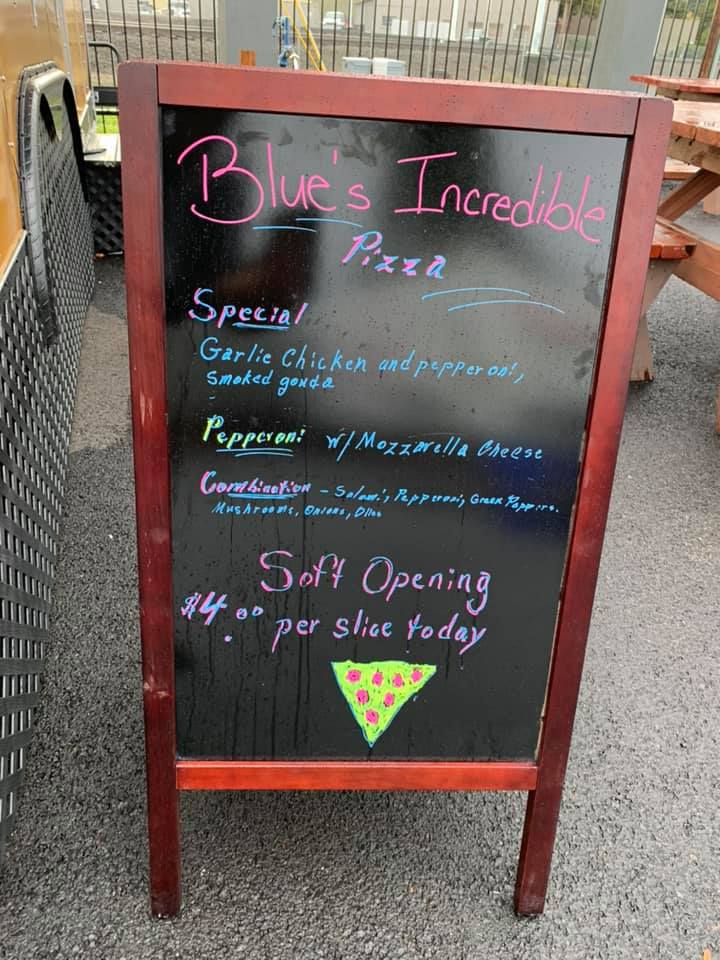 Blue's Incredible
Pizza
Special
Garlic Chicken and pepperoni,
Smoked gouda
Pepperoni w/ Mozzarella Cheese
Combination - Salami, Pepperoni, Green Peppers.
Mushrooms, Onions,
Soft Opening
$4.00 per slice today